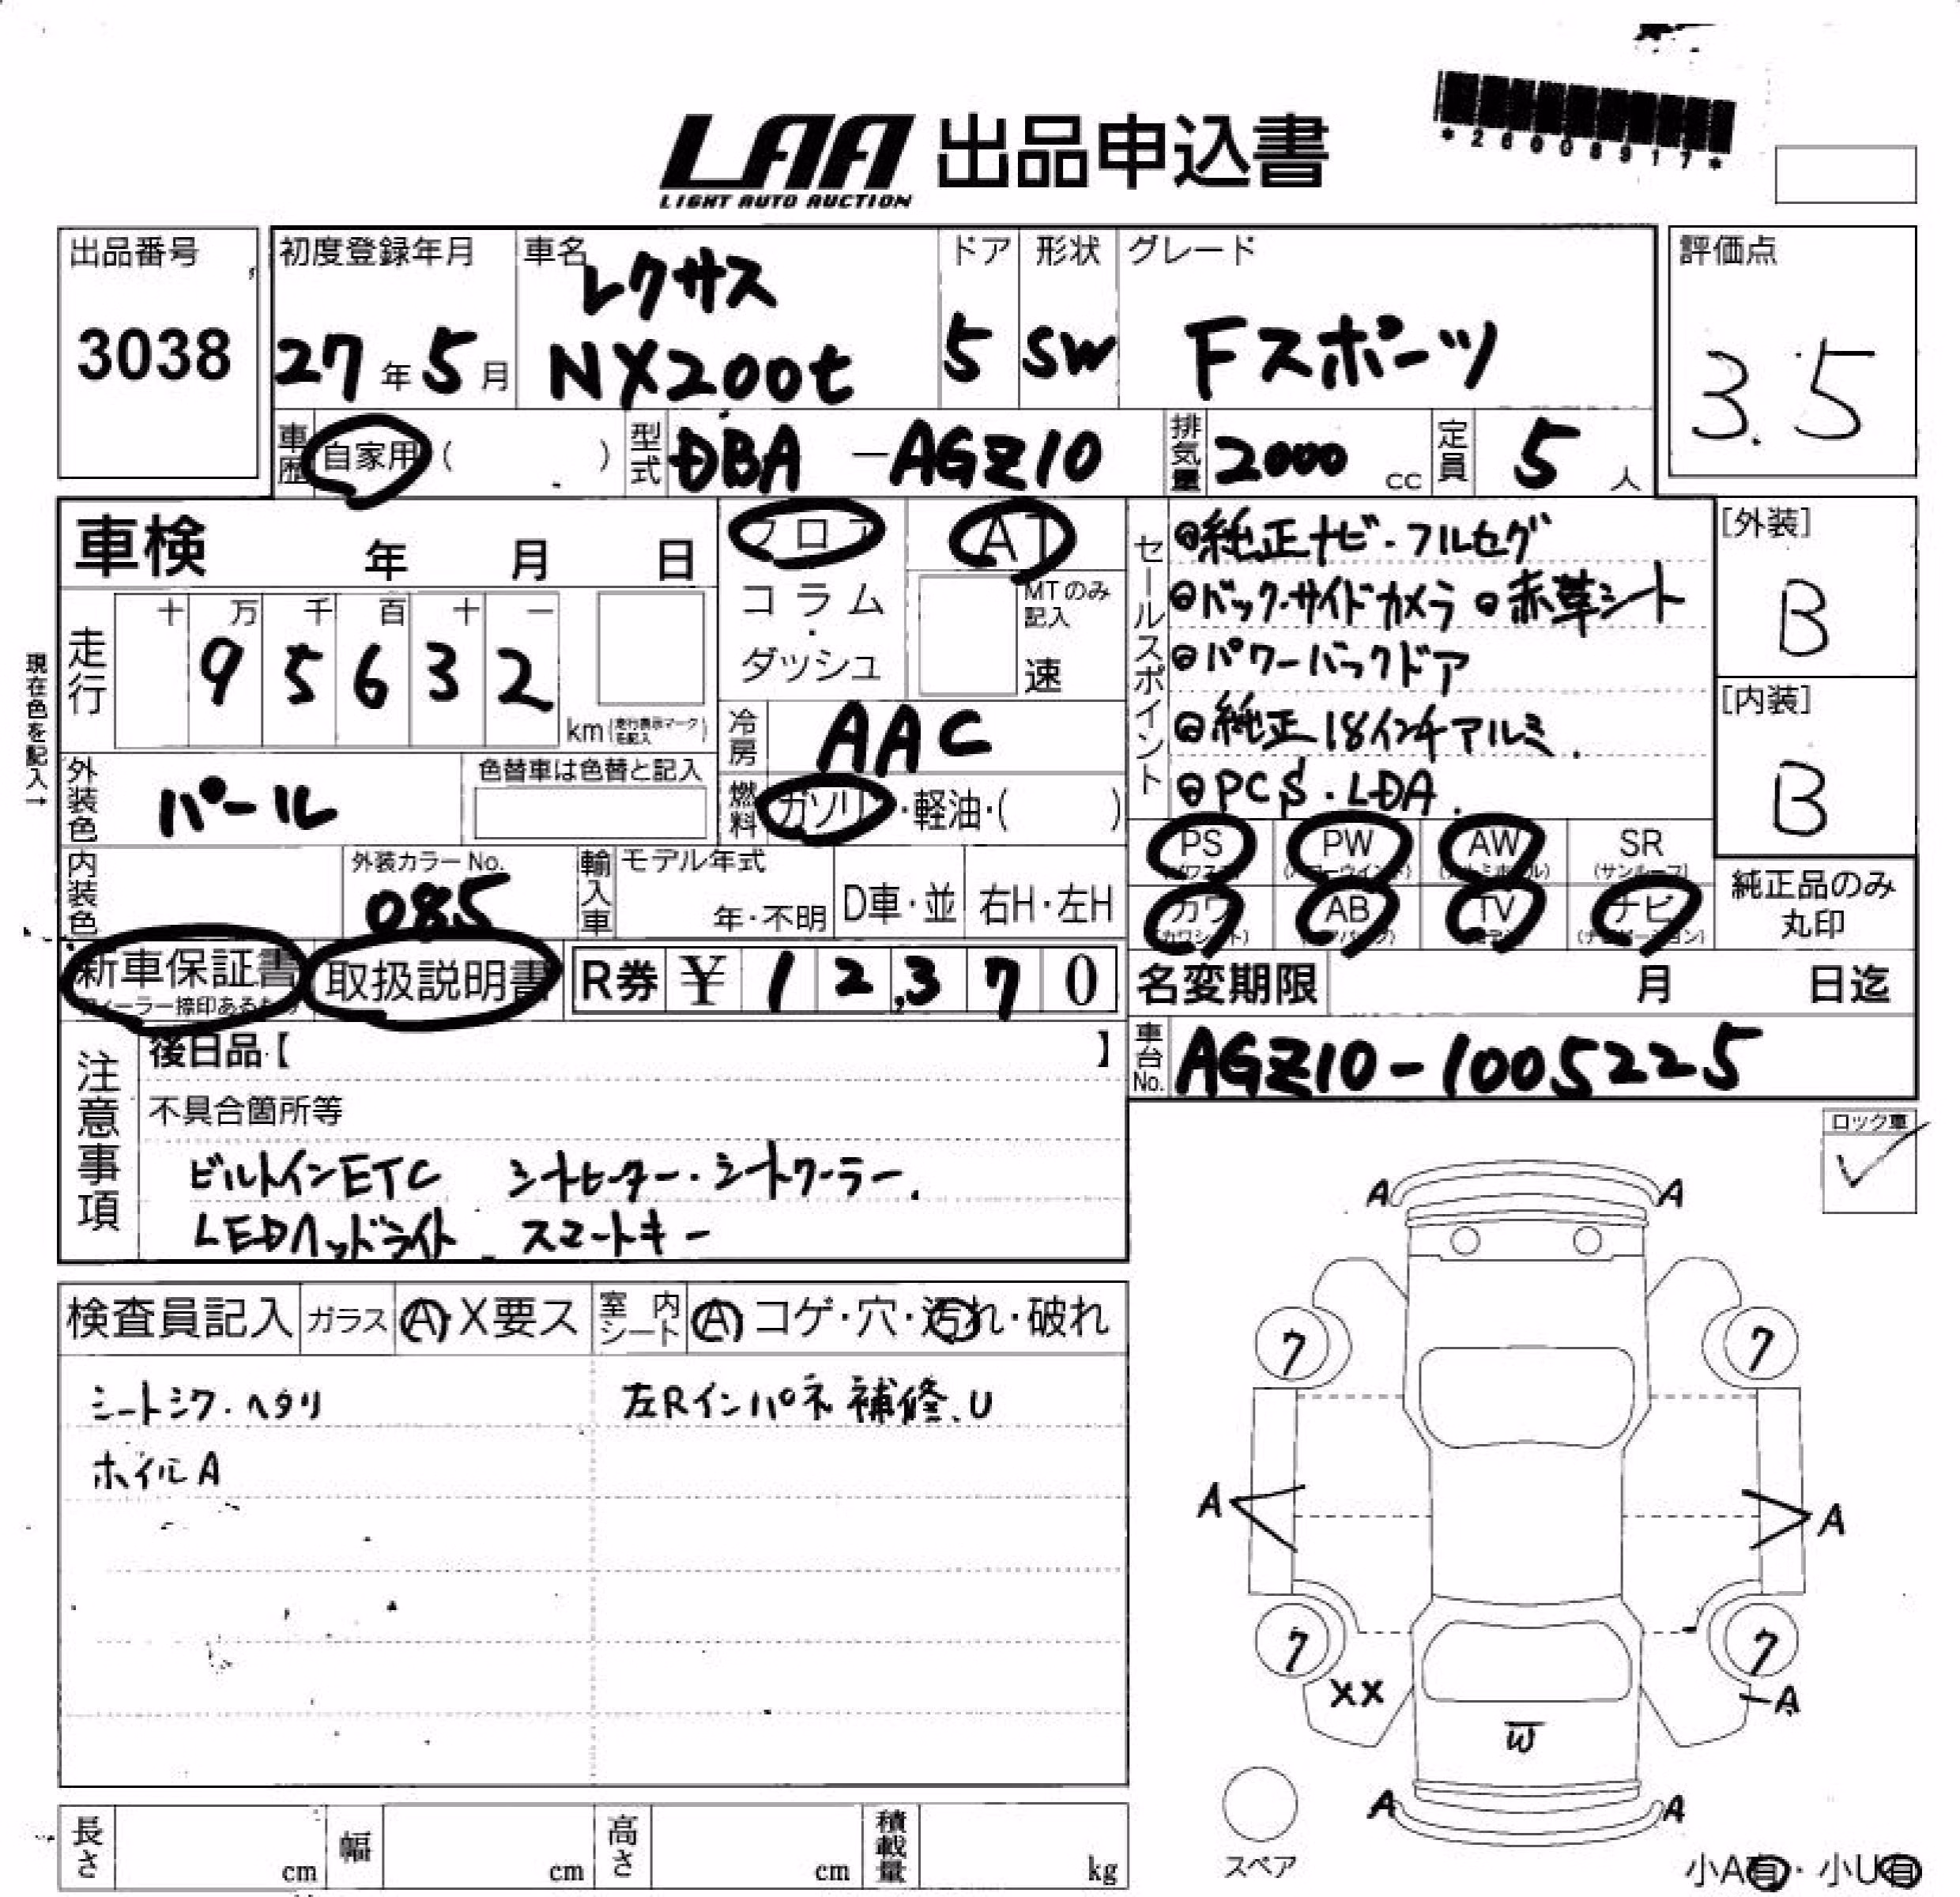 LAA 出品申込書
LIGHT AUTO AUCTION
*26008917*
出品番号
3038
初度登録年月
27年5月
車名
レクサス
NX200t
ドア
5
形状
SW
グレード
Fスポーツ
評価点
3.5
車歴 自家用 ( )
型式 DBA-AGZ10
排気量 2000 cc
定員 5 人
車検 年 月 日
フロア
コラム・
ダッシュ
AT
MTのみ記入
速
セールスポイント
◎純正ナビ・フルセグ
◎バック・サイドカメラ ◎赤革シート
◎パワーバックドア
◎純正18インチアルミ.
◎PCS・LDA.
[外装]
B
[内装]
B
現在色を記入→
走行
十 万 千 百 十 一
9 5 6 3 2
km(走行表示マークを記入)
冷房 AAC
外装色 パール
色替車は色替と記入
燃料 ガソリ・軽油・( )
内装色
外装カラーNo.
085
輸入車
モデル年式
年・不明
D車・並
右H・左H
PS PW AW SR
(サンルーフ)
カワ AB TV ナビ
(カワシート) (ナビゲーション)
純正品のみ
丸印
新車保証書
取扱説明書
R券 ¥ 12,370
名変期限 月 日迄
車台No. AGZ10-1005225
注意事項
後日品【 】
不具合箇所等
ビルトインETC シートヒーター・シートクーラー.
LEDヘッドライト スマートキー
ロック車
✓
検査員記入 ガラス A・X要ス 室内シート A コゲ・穴・汚れ・破れ
シートシワ・ヘタリ
左Rインパネ補修.U
ホイルA
A A
7 7
A A
7 7
XX
A
W
A A
スペア
長さ cm 幅 cm 高さ cm 積載量 kg
小A有・小U有